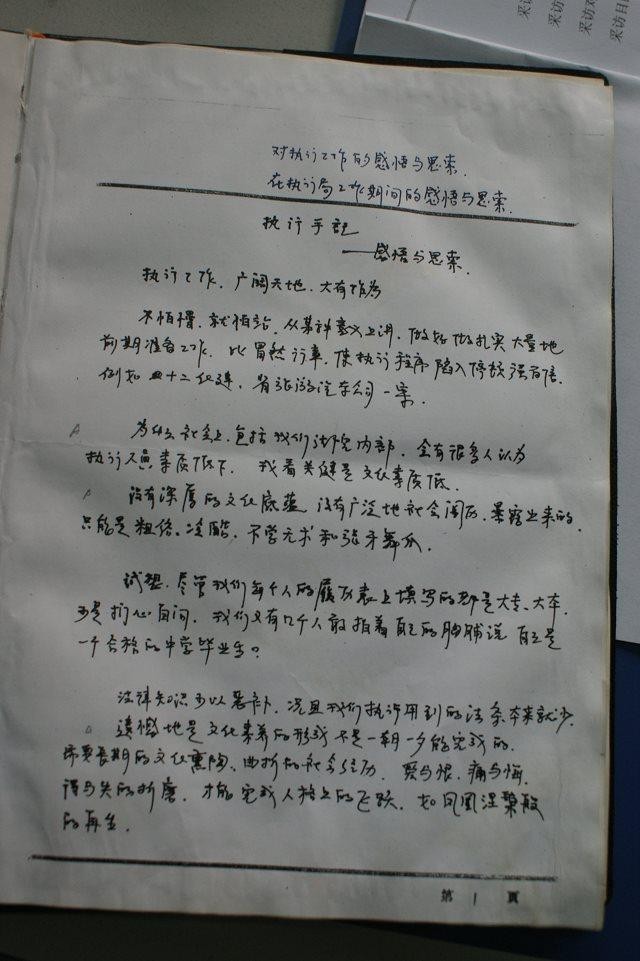 采访
采访对
采访日
对执行工作的感悟与思索.
在执行局工作期间的感悟与思索.
执行手记
——感悟与思索.
执行工作、广阔天地、大有作为
不怕慢、就怕站、从某种意义上讲、做好做扎实大量地
前期准备工作、比冒然行事、使执行程序陷入停顿强百倍.
例如四十二 汽车公司一案.
为什么社会上、包括我们法院内部、会有很多人认为
执行人员素质低下、我看关健是文化素质低.
没有深厚的文化底蕴、没有广泛地社会阅历、暴露出来的
只能是粗俗、冷酷、不学无术和张牙舞爪.
试想、尽管我们每个人的履历表上填写的都是大专、大本、
可是扪心自问、我们又有几个人敢拍着自己的胸脯说自己是
一个合格的中学毕业生?
法律知识可以恶补、况且我们执行用到的法条本来就少.
遗憾地是文化素养的形成不是一朝一夕能完成的.
需要长期的文化熏陶、曲折的社会经历、爱与恨、痛与悔、
得与失的折磨、才能完成人格上的飞跃、如凤凰涅槃般
的再生.
第 1 頁